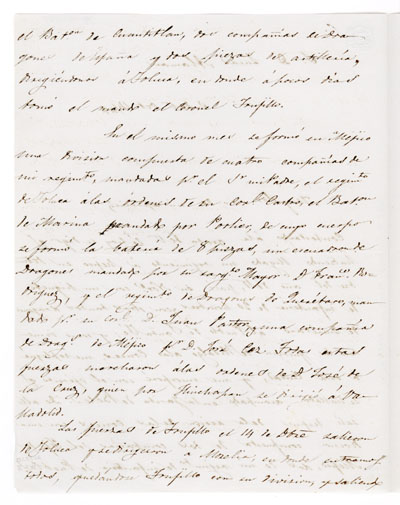 el Baton de Cuautitlan, dos compañias de Dra-
gones de España y dos piezas de artilleria,
dirigiendonos á Toluca, en donde á pocos dias
tomó el mando el Coronel Trujillo.
En el mismo mes se formó en Mejico
una Division compuesta de cuatro compañias de
mi regimto, mandadas pr el Sr mi Padre, el regimto
de Toluca a las órdenes de su Corl Castro, el Baton
de Marina mandado por Porlier, de cuyo cuerpo
se formó la bateria de 8 piezas, un escuadron de
Dragones mandado por su sargto Mayor D. Franco
y el regimto de Dragones de Querétaro, man-
dado pr su Corl D. Juan Pastor, y una compañia
de Drags de Mejico pr D. José Todas estas
fuerzas marcharon á las ordenes de D. José de
la Cruz, quien por Huichapan se dirigió á Va-
lladolid.
Las fuerzas de Trujillo el 14 de Dbre salieron
de Toluca y se dirigieron a Morelia, en donde entramos
todos, quedandose Trujillo con su division, y saliendo